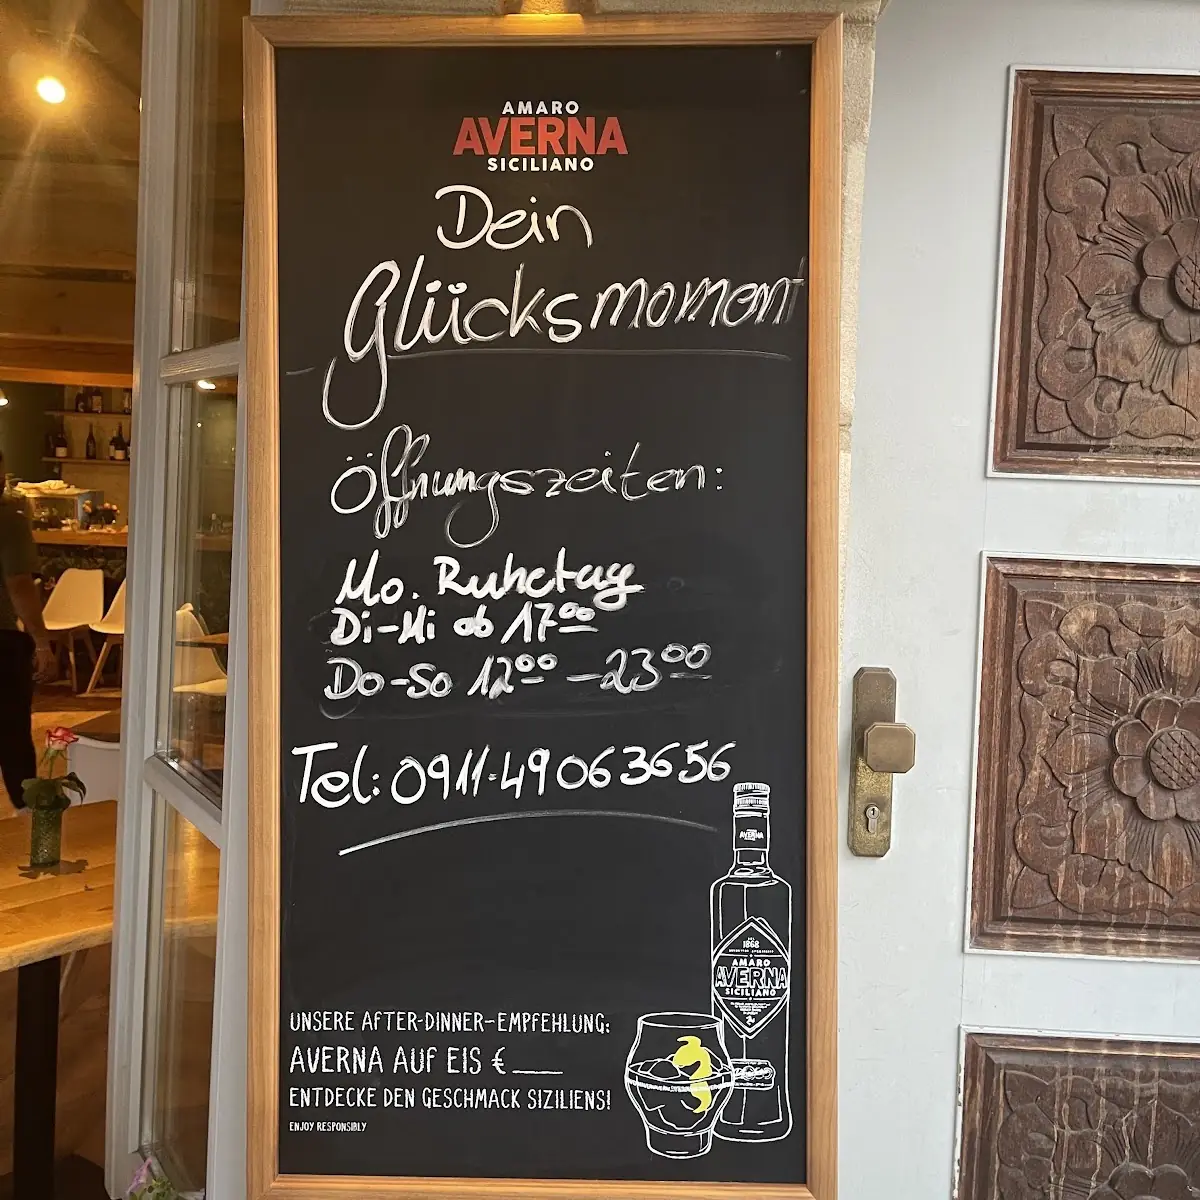 AMARO
AVERNA
SICILIANO
Dein
Glücksmoment
Öffnungszeiten:
Mo. Ruhetag
Di-Mi ab 17⁰⁰
Do-So 12⁰⁰-23⁰⁰
Tel: 0911-49063656
AVERNA
1868
AMARO
AVERNA
SICILIANO
UNSERE AFTER-DINNER-EMPFEHLUNG:
AVERNA AUF EIS €____
ENTDECKE DEN GESCHMACK SIZILIENS!
ENJOY RESPONSIBLY